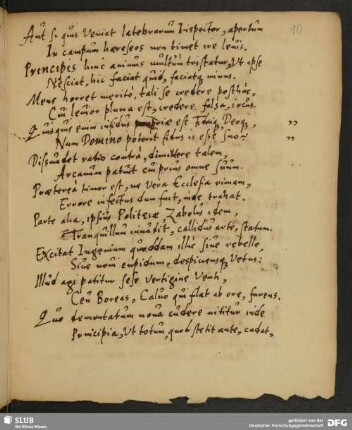 10
Aut si quis veniat latebrarum Inspector, apertum
In campum haereseos non timet ire lenis.
Principis hinc animus multum tristatur, Ut ipse
Nesciat, hic faciat quid, faciatq minus.
Mens horret merito, tali se credere posthac,
Cui levior pluma est, credere falsa, virus.
Quisquis enim infidus est Deoq,
Num Domino poterit fidus is esse suo?
Dissuadet ratio contra, dimittere talem,
Arcanum patuit cui prius omne suum.
Praeterea timor est, ne vera Ecclesia rimam,
Errore infectus dum fuit, inde trahat.
Parte alia, ipsius Politiae Zabolus idem,
Tranquillum invadit, callidus arte, statum.
Excitat Ingenium quoddam illic sive rebelle,
Sive novi cupidum, despiciensque vetus:
Illud aget patitur sese vertigine Venti,
Ceu Boreas, Calvo qui flat ab ore, furens.
Quo dementatum nova cudere nititur inde
Principia, Ut totum, quod stetit ante, cadat,
SLUB
Wir führen Wissen.
gefördert von der
Deutschen Forschungsgemeinschaft
DFG